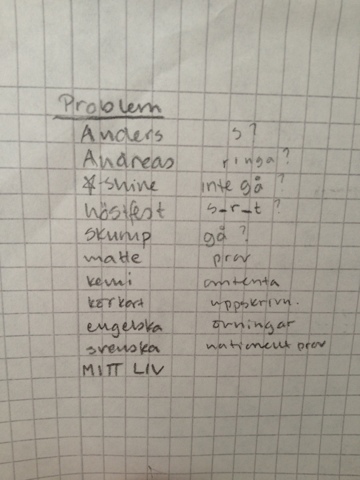 Problem
Anders s?
Andreas ringa?
*-shine inte gå?
höstfest s-r-t?
skump gå?
matte prov
kemi omtenta
körkort uppskrivn.
engelska övningar
svenska nationellt prov
MITT LIV